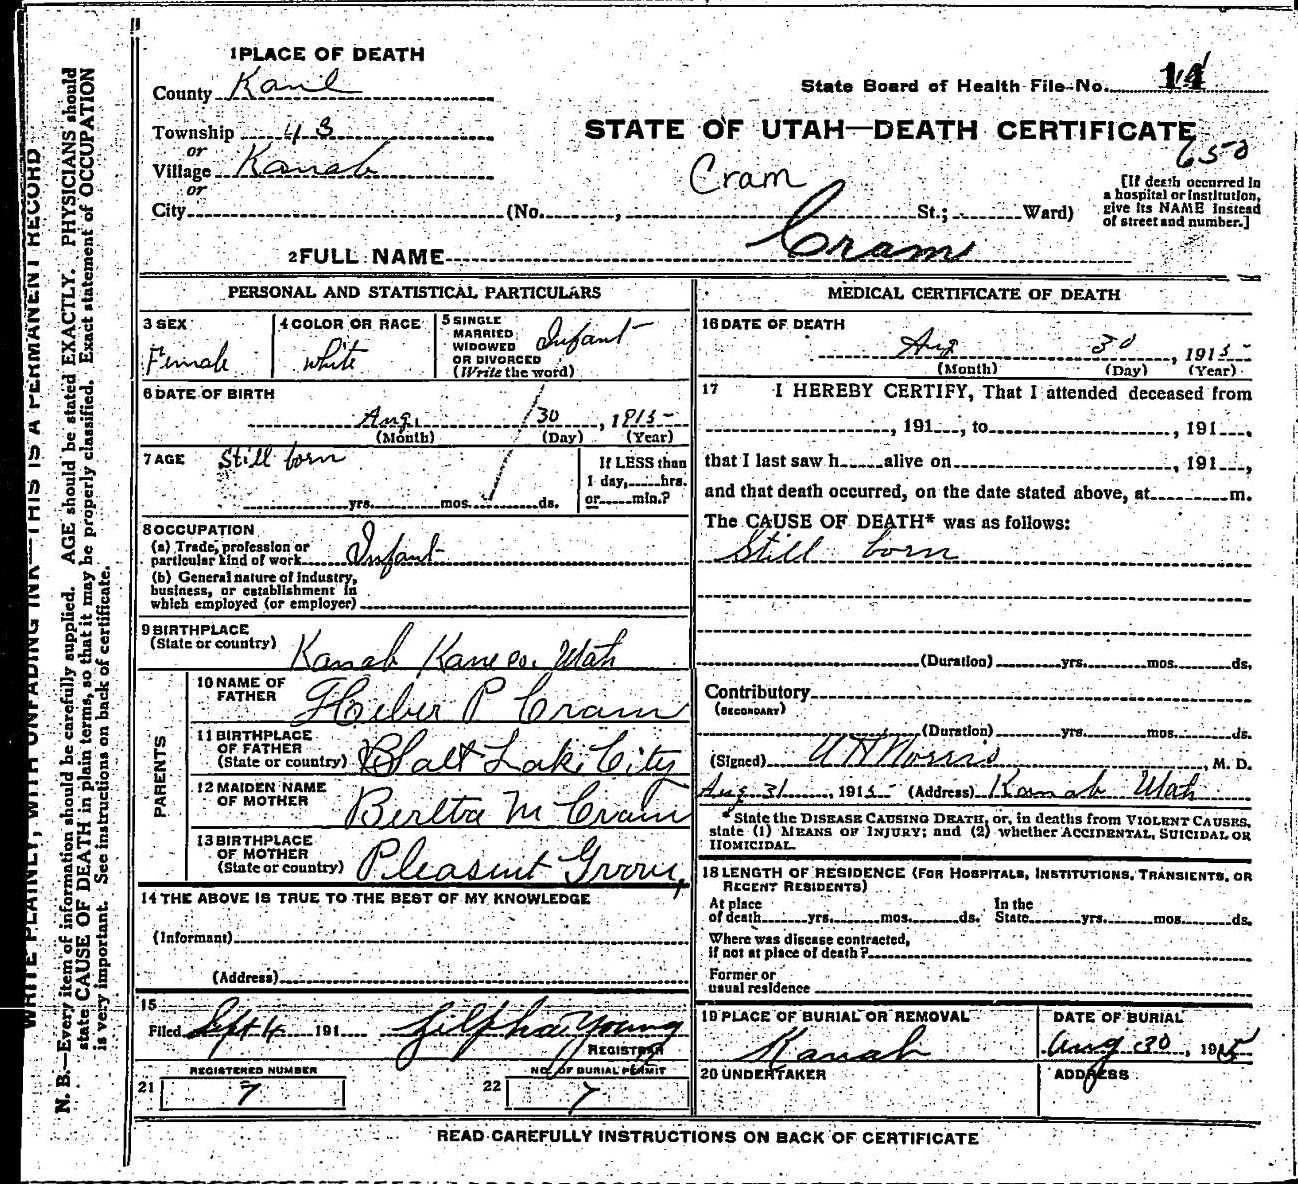 1 PLACE OF DEATH
County Kane
State Board of Health File No. 14
Township 43
STATE OF UTAH—DEATH CERTIFICATE
or
650
Village Kanab
Cram
or
City (No. , St.; Ward)
[If death occurred in a hospital or institution, give its NAME instead of street and number.]
2 FULL NAME Cram
PERSONAL AND STATISTICAL PARTICULARS
3 SEX
Female
4 COLOR OR RACE
White
5 SINGLE
MARRIED
WIDOWED
OR DIVORCED
(Write the word)
Infant
6 DATE OF BIRTH
Aug. 30, 1915
(Month) (Day) (Year)
7 AGE Still born
yrs. mos. ds.
If LESS than
1 day, hrs.
or min.?
8 OCCUPATION
(a) Trade, profession or
particular kind of work Infant
(b) General nature of industry,
business, or establishment in
which employed (or employer)
9 BIRTHPLACE
(State or country) Kanab Kane Co. Utah
PARENTS
10 NAME OF
FATHER Heber P Cram
11 BIRTHPLACE
OF FATHER
(State or country) Salt Lake City
12 MAIDEN NAME
OF MOTHER Bertha M Cram
13 BIRTHPLACE
OF MOTHER
(State or country) Pleasant Grove,
14 THE ABOVE IS TRUE TO THE BEST OF MY KNOWLEDGE
(Informant)
(Address)
15
Filed Sept 4 191 Zilpha Young
REGISTRAR
REGISTERED NUMBER
21 7
NO. OF BURIAL PERMIT
22 7
MEDICAL CERTIFICATE OF DEATH
16 DATE OF DEATH
Aug 30, 1915
(Month) (Day) (Year)
17 I HEREBY CERTIFY, That I attended deceased from
, 191 , to , 191 .
that I last saw h alive on , 191 ,
and that death occurred, on the date stated above, at m.
The CAUSE OF DEATH* was as follows:
Still born
(Duration) yrs. mos. ds.
Contributory
(SECONDARY)
(Duration) yrs. mos. ds.
(Signed) Norris, M. D.
Aug 31, 1915 (Address) Kanab Utah
*State the DISEASE CAUSING DEATH, or, in deaths from VIOLENT CAUSES,
state (1) MEANS OF INJURY; and (2) whether ACCIDENTAL, SUICIDAL OR
HOMICIDAL.
18 LENGTH OF RESIDENCE (FOR HOSPITALS, INSTITUTIONS, TRANSIENTS, OR
RECENT RESIDENTS)
At place
of death yrs. mos. ds.
In the
State yrs. mos. ds.
Where was disease contracted,
if not at place of death?
Former or
usual residence
19 PLACE OF BURIAL OR REMOVAL
Kanab
DATE OF BURIAL
Aug 30, 1915
20 UNDERTAKER
ADDRESS
READ CAREFULLY INSTRUCTIONS ON BACK OF CERTIFICATE
WRITE PLAINLY, WITH UNFADING INK—THIS IS A PERMANENT RECORD
N. B.—Every item of information should be carefully supplied. AGE should be stated EXACTLY. PHYSICIANS should
state CAUSE OF DEATH in plain terms, so that it may be properly classified. Exact statement of OCCUPATION
is very important. See instructions on back of certificate.